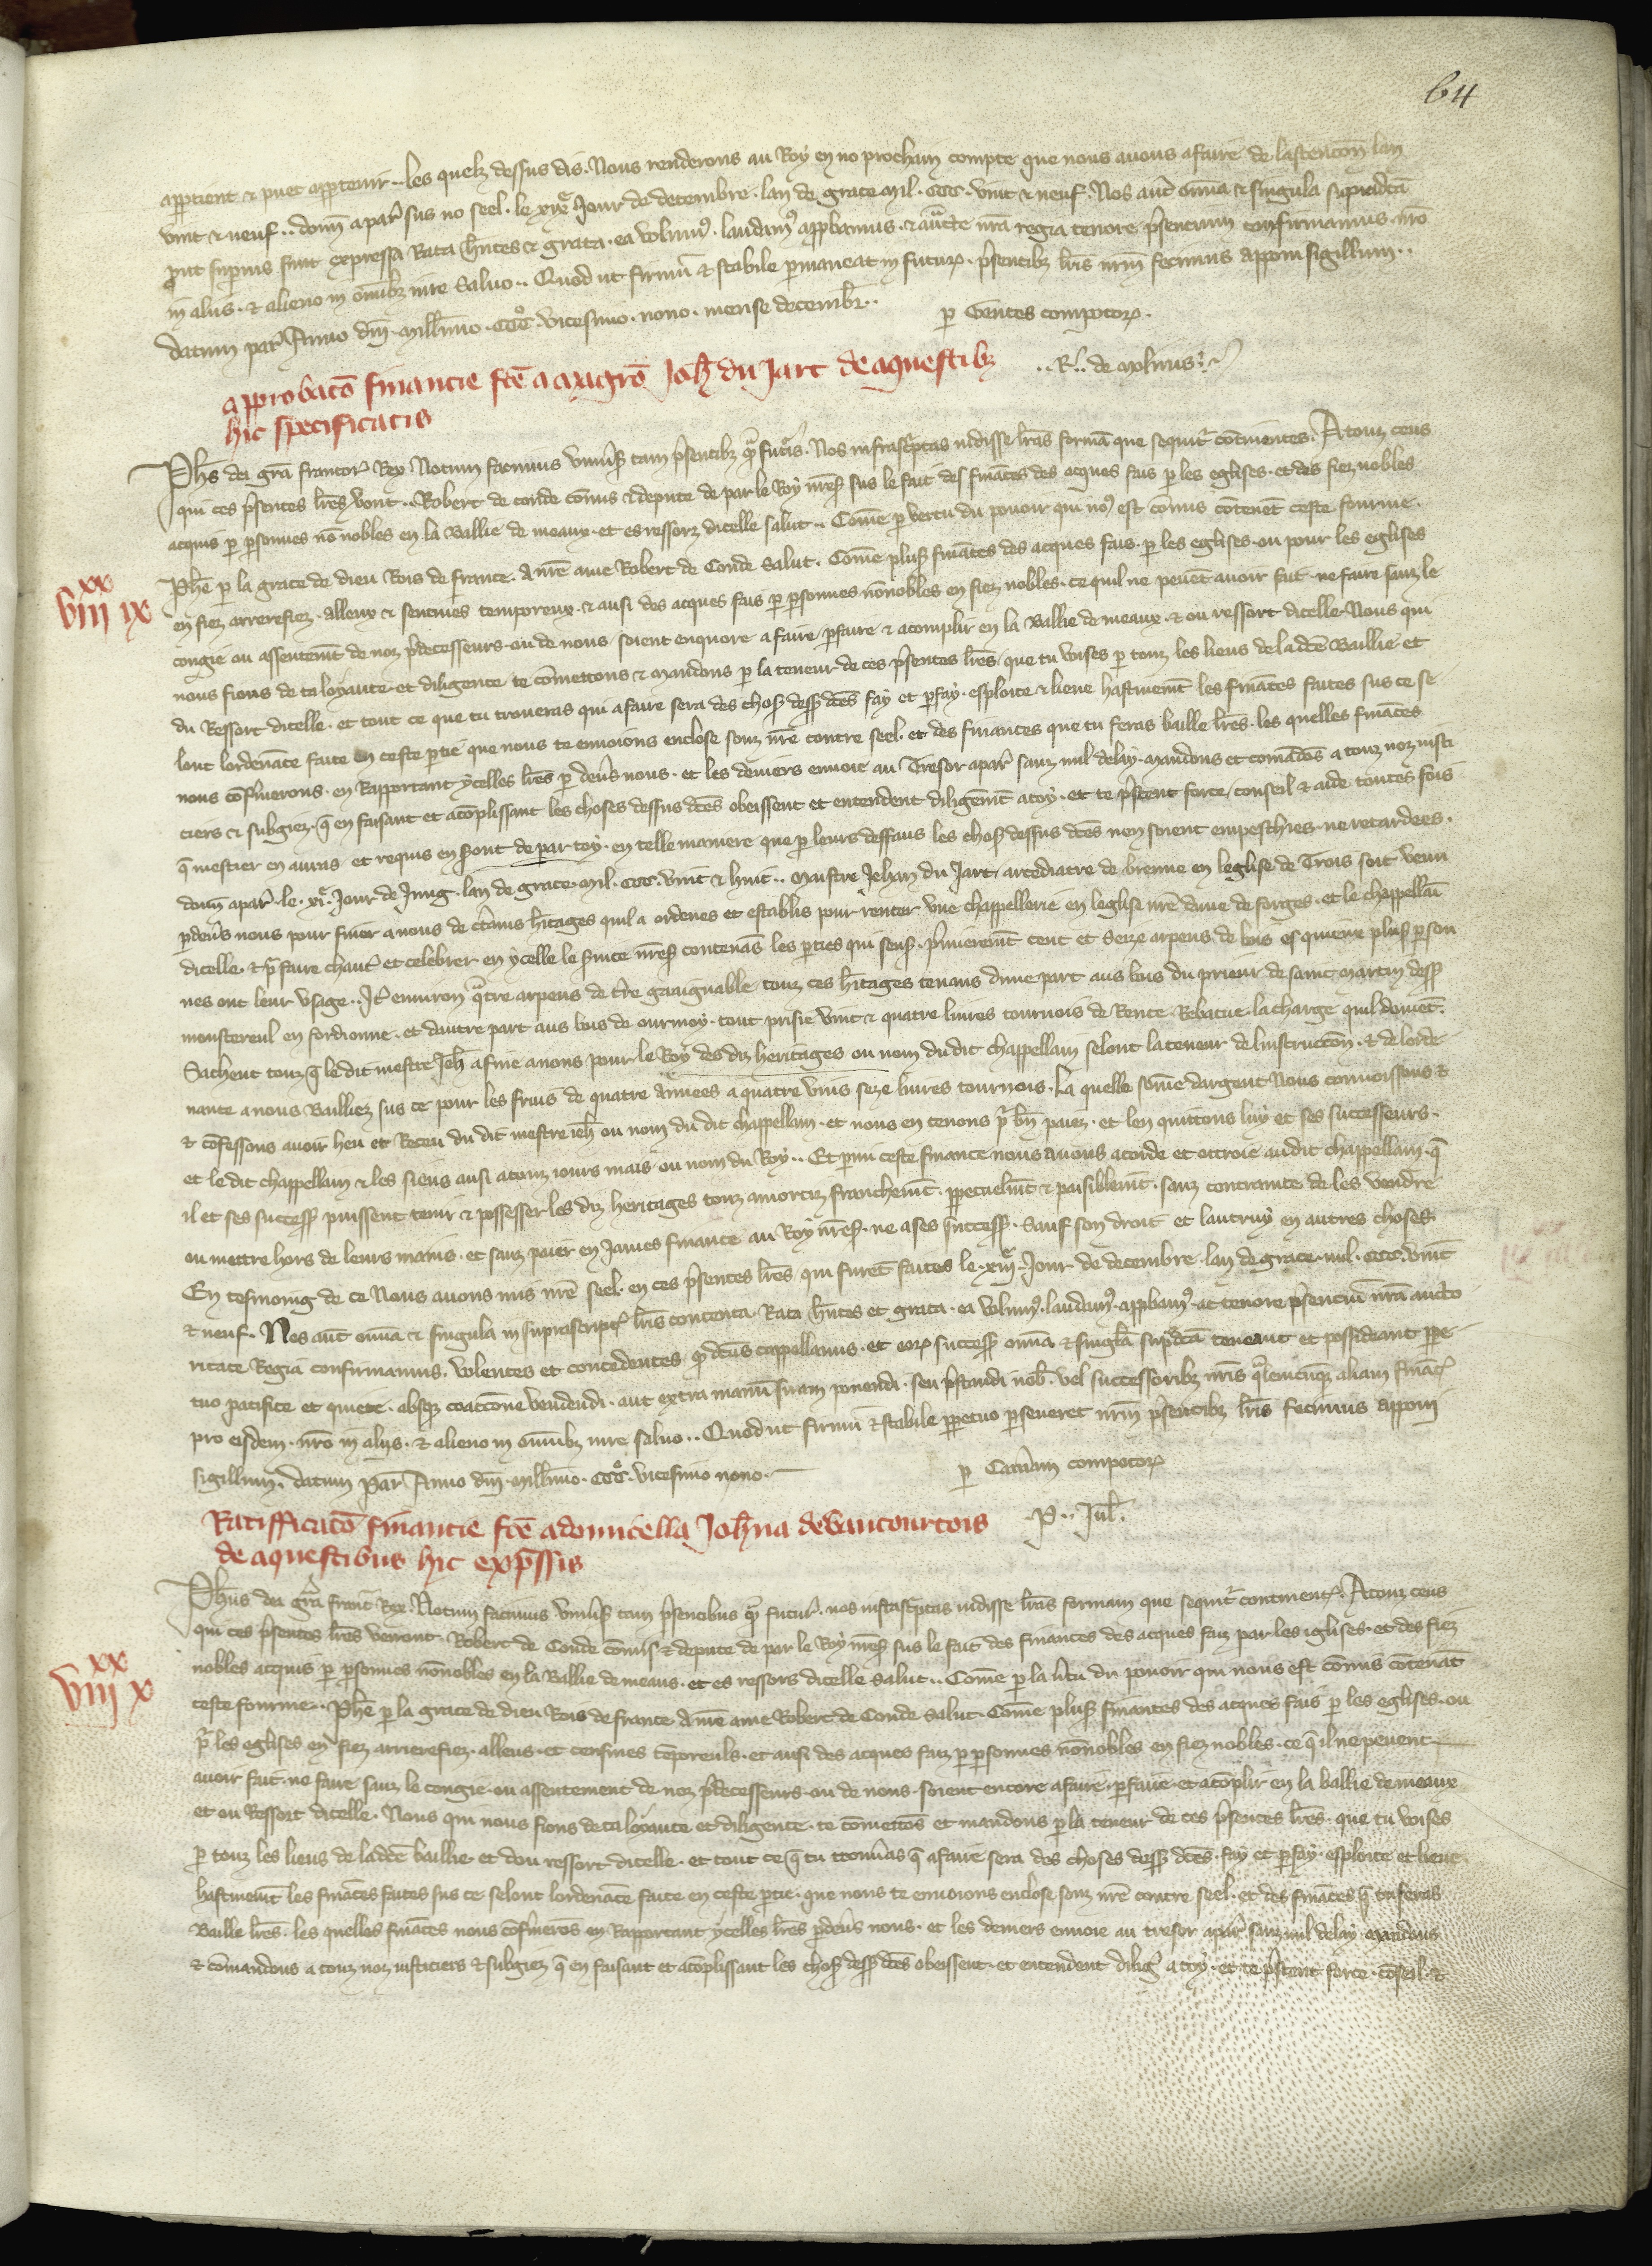 64
appartient & puet appartenir .. les quelz dessus dis. Nous renderons au Roy en no prochain compte que nous auons afaire de lascencon lan
vint & neuf .. donn a par sus no seel. le xix Jour de decembre. lan de grace mil. ccc. vint & neuf. Nos aut omnia & singula supradcta
put supius sunt expressa Rata hntes & grata. ea volum9. laudam9 approbamus. & aucte nra regia tenore psencium confirmamus. nro
in aliis. & alieno in omibz iure saluo .. Quod ut firmu & stabile pmaneat in futur. psentibz lris nrm fecimus apponi sigillum ..
datum par Anno dni. millimo. ccco. vicesimo. nono. mense decembr ..
p Gentes compotor.
.. R .. de molinis
approbaco financie fce a magro Joh du Jart de aquestibz
hic specificatis
Phs dei gra francor Rex Notum facimus vniusis tam psentibz qm futis. Nos infrascptas uidisse lras forma que sequit continentes. A touz ceus
qui ces psentes lres vront .. Robert de conde comis & depute de par le Roy nres sus le fait des finaces des acques fais p les eglises. et des fiez nobles
acquis p psonnes no nobles en la Ballie de meaux. et es ressorz dicelle salut .. Come p vertu du pouoir qui no9 est comis contenet ceste fourme.
xx
viii ix
Phe p la grace de dieu Rois de france. A nre ame Robert de Conde Salut. Come plus finaces des acques fais. p les eglises. ou pour les eglises
en fiez arrerefiez. alleux & sencines temporeux. & ausi des acques fais p psonnes nonobles en fiez nobles. ce quil ne peuet auoir fait ne faire sanz le
congie ou assentemt de noz pdecesseurs. ou de nous soient enquore a faire. pfaire & acomplir en la Ballie de meaux. & ou ressort dicelle. Nous qui
nous fions de ta loyaute. et diligence te comettons & mandons p la teneur de ces psentes lres. que tu voises p touz les lieus de la dce Baillie et
du Ressort dicelle. et tout ce que tu troueras qui a faire sera des chos dess dces fay et pfay. esploite & lieue hastiuemt les finaces faites sus ce se
lonc lordenace faite en ceste ptie que nous te enuoions enclose souz nre contre seel. et des finances que tu feras baille lres. les quelles finaces
nous cofirmerons. en Rapportant ycelles lres p deus nous. et les deniers enuoie au Tresor apar sanz nul delay. Mandons et comados a touz noz iusti
ciers & subgiez. q en faisant et acoplissant les choses dessus dces obeissent et entendent diligemt a toy. et te pstent force, conseil & aide toutes fois
q mestier en auras et requis en sont de par toy. en telle maniere que p leurs deffaus les chos dessus dces nen soient empeschies ne retardees.
donn apar. le. xi. Jour de Juing. lan de grace. mil. ccc. vint & huit .. Maistre Jehan du Jart, arcediacre de brenne en leglise de Trois soit venu
pdeus nous pour finer a nous de ctains hitages quil a ordenes et establis pour renter vne chappellerie en leglise nre dame de forges. et le chappellai
dicelle. & p faire chant et celebrer en ycelle le suice nres contenas les pties qui sens. Pmieremt cent et Seize arpens de bois es quieux plus pson
nes ont leur vsage .. It enuiron qtre arpens de tre gaaignable touz ces hitages tenans dune part aus bois du prieur de saint martin dess
monstereul en fordionne. et dautre part aus bois de ourmoy. tout prisie vint & quatre liures tournois de Rente. Rebatue la charge quil doiuet.
Sachent touz q le dit mestre Jeh a fine a nous pour le Roy des diz heritages ou nom du dit chappellain selonc la teneur de linstruccon. & de lorde
nance a nous Bailliez sus ce pour les fruis de quatre annees a quatre vins seze liures tournois. La quelle some dargent Nous connoissons &
& cofessons auoir heu et Receu du dit mestre ieh ou nom du dit chappellain. et nous en tenons p bn paiez. et len quittons luy et ses successeurs.
et le dit chappellain & les siens ausi a touz iours mais ou nom du Roy .. Et pmi ceste finance nous auons acorde et ottroie au dit chappellain. q
il et ses success puissent tenir & possesser les diz heritages touz amortiz franchemt. ppetuelmt & paisiblemt. sanz contrainte de les vendre
ou mettre hors de leurs mains. et sanz paier en James finance au Roy nres. ne a ses success. Sauf son droit et lautruy en autres choses
En tesmoing de ce Nous auons mis nre seel. en ces psentes lres qui furet faites le xiiii. Jour de decembre. lan de grace. mil. ccc. vint
& neuf. Nos aut omia & singula in suprascript lris contenta. Rata hntes et grata. ea volum9. laudam9. appbam9. ac tenore psenciu nra aucto
ritate Regia confirmamus. Volentes et concedentes q dcus cappellanus. et eor success omia & singla supdcta teneant et possideant ppe
tuo pacifice et quiete. absq coaccone vendendi. aut extra manu suam ponendi. seu pstandi nob. vel successoribz nris qlemcuq aliam finac
pro eisdem. nro in aliis. & alieno in omibz iure saluo .. Quod ut firmu & stabile ppetuo pseueret nrm psentibz lris fecimus apponi
sigillum. datum Par Anno dni. millimo. ccco. vicesimo nono.
p Camam compotor
P .. Jul.
Ratifficaco financie fce a domicella Johna de vaucourtois
de aquestibus hic expssis
xx
viii x
Phus dei gra franc Rex. Notum facimus vniusis tam psentibus q futur. nos infrascptas uidisse lras formam que sequit continent. A touz ceus
qui ces psentes lres verront. Robert de Conde comis & depute de par le Roy nres sus le fait des finances des acques faiz par les iglises. et des fiez
nobles acquis p psonnes nonobles en la Ballie de meaus. et es ressors dicelle salut .. Come p la vtu du pouoir qui nous est comis contenat
ceste fourme .. Phe p la grace de dieu Rois de france A nre ame Robert de Conde salut. Come plus finances des acques fais p les eglises. ou
p les eglises en fiez arrierefiez. alleus. et censiues teporeuls. et ausi des acques faiz p psonnes nonobles en fiez nobles. ce q il ne peuent
auoir fait. ne faire sanz le congie. ou assentement de noz pdecesseurs. ou de nous. soient encore a faire. pfaire. et acoplir en la ballie de meaux
et ou Ressort dicelle. Nous qui nous fions de ta loyaute et diligence. te comettos et mandons p la teneur de ces psentes lres. que tu voises
p touz les lieus de la dce baillie. et dou ressort dicelle. et tout ce q tu trouuas q a faire sera des choses dess dces. fay et pfay. esploite et lieue
hastiuemt les finaces faites sus ce selonc lordenace faite en ceste ptie. que nous te enuoions enclose souz nre contre seel. et des finaces q tu feras
Baille lres. les quelles finaces nous cofirmeros en Rapportant ycelles lres pdeus nous. et les deniers enuoie au tresor apar sanz nul delay. Mandons
& comandons a touz noz iusticiers & subgiez q en faisant et acoplissant les chos dess dces obeissent. et entendent dilig a toy. et te pstent force. coseil. &